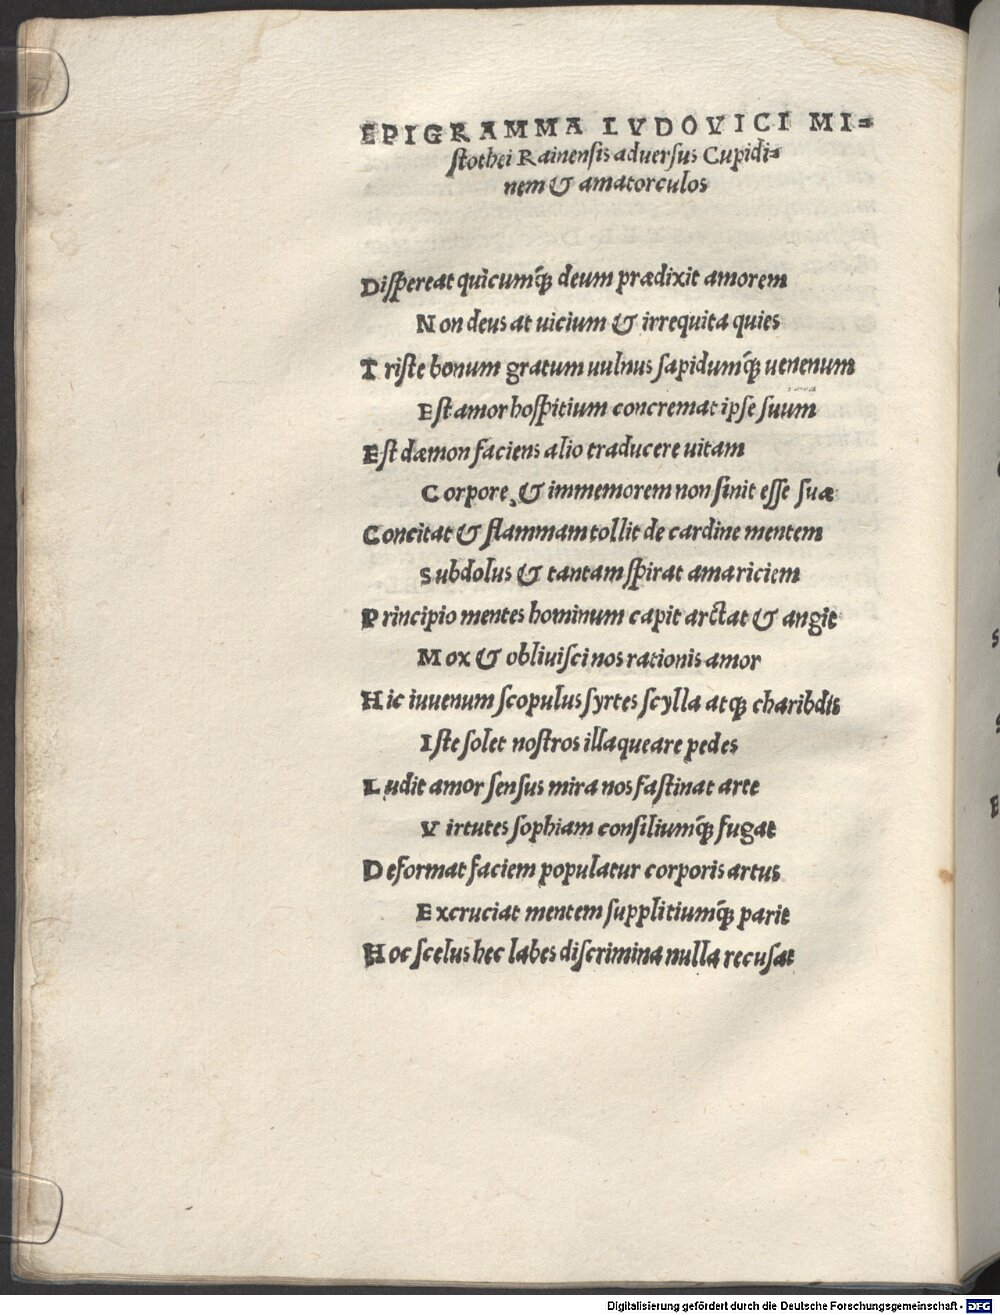 EPIGRAMMA LVDOVICI MI=
stothei Rainensis aduersus Cupidi=
nem & amatorculos
Dispereat quicumq́; deum prædixit amorem
Non deus at uicium & irrequita quies
Triste bonum gratum uulnus sapidumq́; uenenum
Est amor hospitium concremat ipse suum
Est dæmon faciens alio traducere uitam
Corpore, & immemorem non sinit esse suæ
Concitat & flammam tollit de cardine mentem
Subdolus & tantam spirat amariciem
Principio mentes hominum capit arctat & angit
Mox & obliuisci nos rationis amor
Hic iuuenum scopulus syrtes scylla atq; charibdis
Iste solet nostros illaqueare pedes
Ludit amor sensus mira nos fastinat arte
Virtutes sophiam consiliumq́; fugat
Deformat faciem populatur corporis artus
Excruciat mentem supplitiumq́; parit
Hoc scelus hec labes discrimina nulla recusat
Digitalisierung gefördert durch die Deutsche Forschungsgemeinschaft - DFG